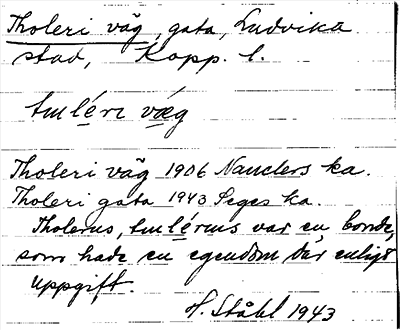 Tholeri väg, gata, Ludvika
stad, Kopp. l.
tɯléri væg
Tholeri väg 1906 Nauclers ka.
Tholeri gata 1943 Seges ka.
Tholerus, tɯlérɯs var en bonde,
som hade en egendom där enligt
uppgift.
H. Ståhl 1943